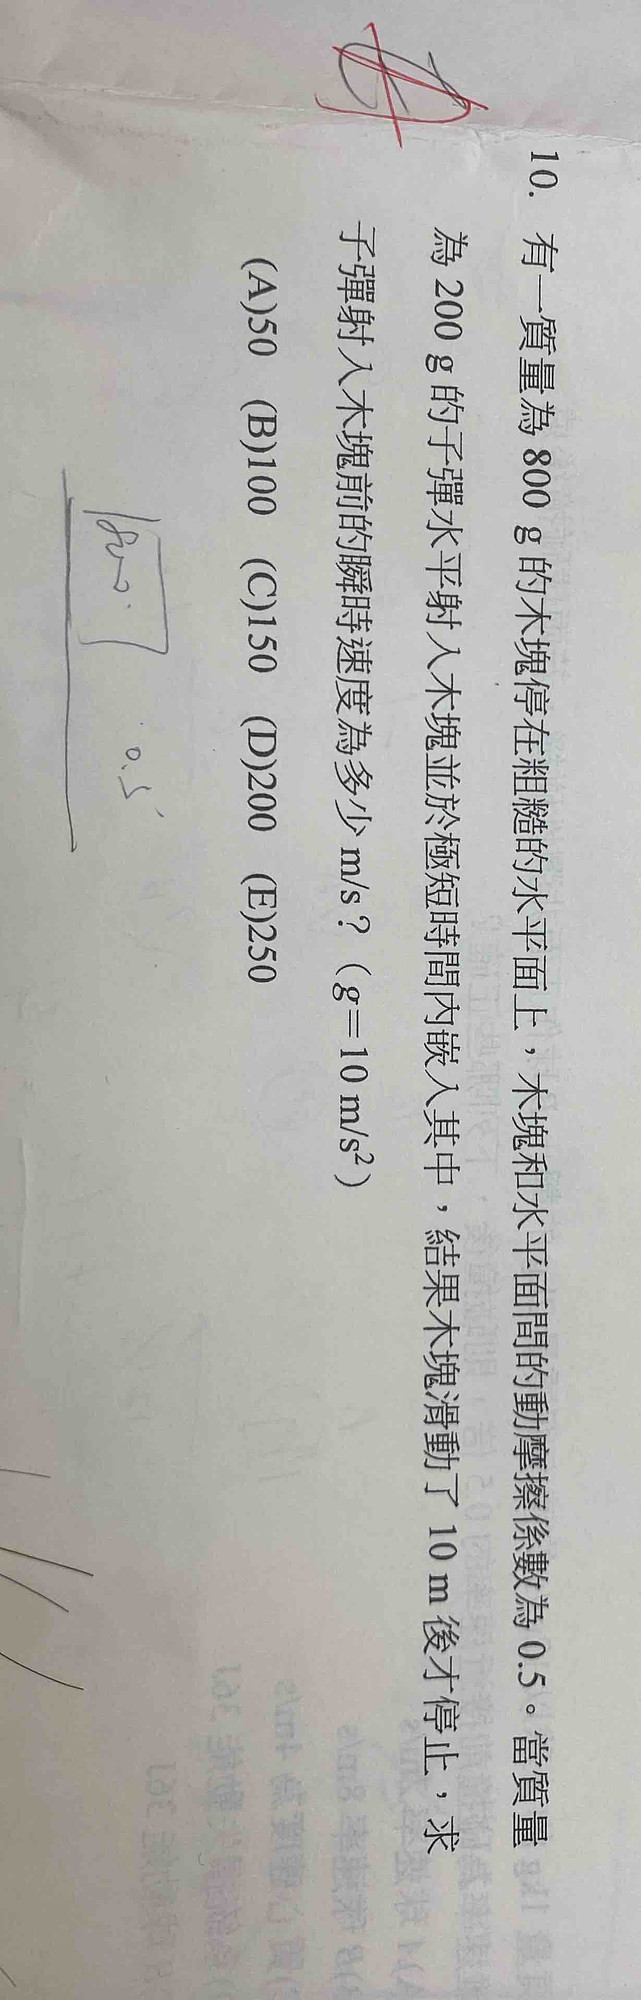 10. 有一質量為 800 g 的木塊停在粗糙的水平面上，木塊和水平面間的動摩擦係數為 0.5。當質量
為 200 g 的子彈水平射入木塊並於極短時間內嵌入其中，結果木塊滑動了 10 m 後才停止，求
子彈射入木塊前的瞬時速度為多少 m/s？（g＝10 m/s²）
(A)50 (B)100 (C)150 (D)200 (E)250
800
0.5